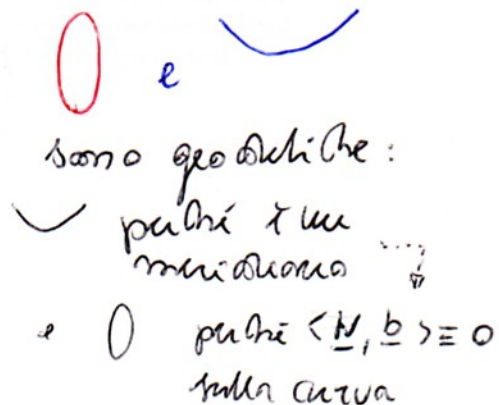 e
sono geodetiche:
perché è un
meridiano
e perché <N, b> ≡ 0
sulla curva